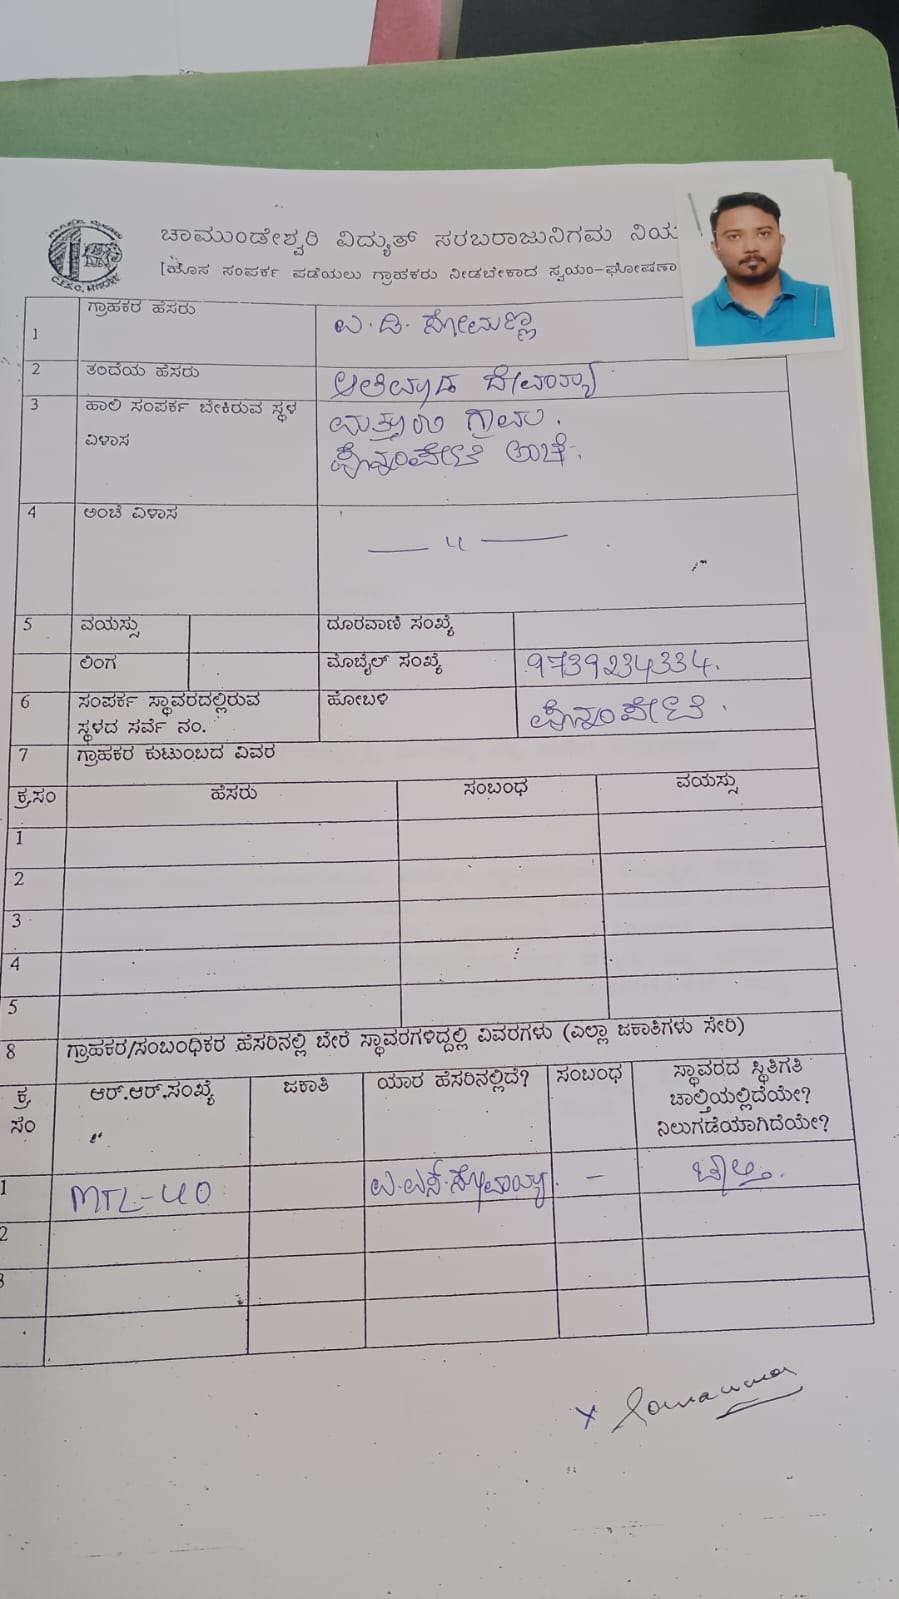 ಚಾಮುಂಡೇಶ್ವರಿ ವಿದ್ಯುತ್ ಸರಬರಾಜುನಿಗಮ ನಿಯ
[ಹೊಸ ಸಂಪರ್ಕ ಪಡೆಯಲು ಗ್ರಾಹಕರು ನೀಡಬೇಕಾದ ಸ್ವಯಂ-ಘೋಷಣಾ
C.E.S.C, MYSORE
1 ಗ್ರಾಹಕರ ಹೆಸರು ಎ. ಡಿ. ಸೋಮಣ್ಣ
2 ತಂದೆಯ ಹೆಸರು
3 ಹಾಲಿ ಸಂಪರ್ಕ ಬೇಕಿರುವ ಸ್ಥಳ ಗ್ರಾಮ.
ವಿಳಾಸ ಪೊನ್ನಂಪೇಟೆ ಅಂಚೆ.
4 ಅಂಚೆ ವಿಳಾಸ — 〃 —
5 ವಯಸ್ಸು ದೂರವಾಣಿ ಸಂಖ್ಯೆ
ಲಿಂಗ ಮೊಬೈಲ್ ಸಂಖ್ಯೆ 9739234334.
6 ಸಂಪರ್ಕ ಸ್ಥಾವರದಲ್ಲಿರುವ ಹೋಬಳಿ ಪೊನ್ನಂಪೇಟೆ.
ಸ್ಥಳದ ಸರ್ವೆ ನಂ.
7 ಗ್ರಾಹಕರ ಕುಟುಂಬದ ವಿವರ
ಕ್ರ.ಸಂ ಹೆಸರು ಸಂಬಂಧ ವಯಸ್ಸು
1
2
3
4
5
8 ಗ್ರಾಹಕರ/ಸಂಬಂಧಿಕರ ಹೆಸರಿನಲ್ಲಿ ಬೇರೆ ಸ್ಥಾವರಗಳಿದ್ದಲ್ಲಿ ವಿವರಗಳು (ಎಲ್ಲಾ ಜಕಾತಿಗಳು ಸೇರಿ)
ಕ್ರ. ಆರ್.ಆರ್.ಸಂಖ್ಯೆ ಜಕಾತಿ ಯಾರ ಹೆಸರಿನಲ್ಲಿದೆ? ಸಂಬಂಧ ಸ್ಥಾವರದ ಸ್ಥಿತಿಗತಿ
ಸಂ ಚಾಲ್ತಿಯಲ್ಲಿದೆಯೇ?
ನಿಲುಗಡೆಯಾಗಿದೆಯೇ?
1 MTL-40 ಎ.ಎಸ್.ಸೋಮಯ್ಯ. – ಚಾಲ್ತಿ.
2
3
x Somanna